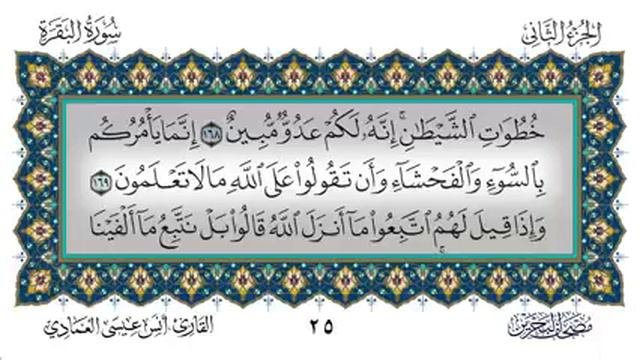 الجزء الثاني
سورة البقرة
خُطُوَٰتِ ٱلشَّيْطَٰنِۚ إِنَّهُۥ لَكُمْ عَدُوٌّ مُّبِينٌ ١٦٨ إِنَّمَا يَأْمُرُكُم
بِٱلسُّوٓءِ وَٱلْفَحْشَآءِ وَأَن تَقُولُوا۟ عَلَى ٱللَّهِ مَا لَا تَعْلَمُونَ ١٦٩
وَإِذَا قِيلَ لَهُمُ ٱتَّبِعُوا۟ مَآ أَنزَلَ ٱللَّهُ قَالُوا۟ بَلْ نَتَّبِعُ مَآ أَلْفَيْنَا
مصحف البحرين
٢٥
القارئ أنس عيسى العمادي